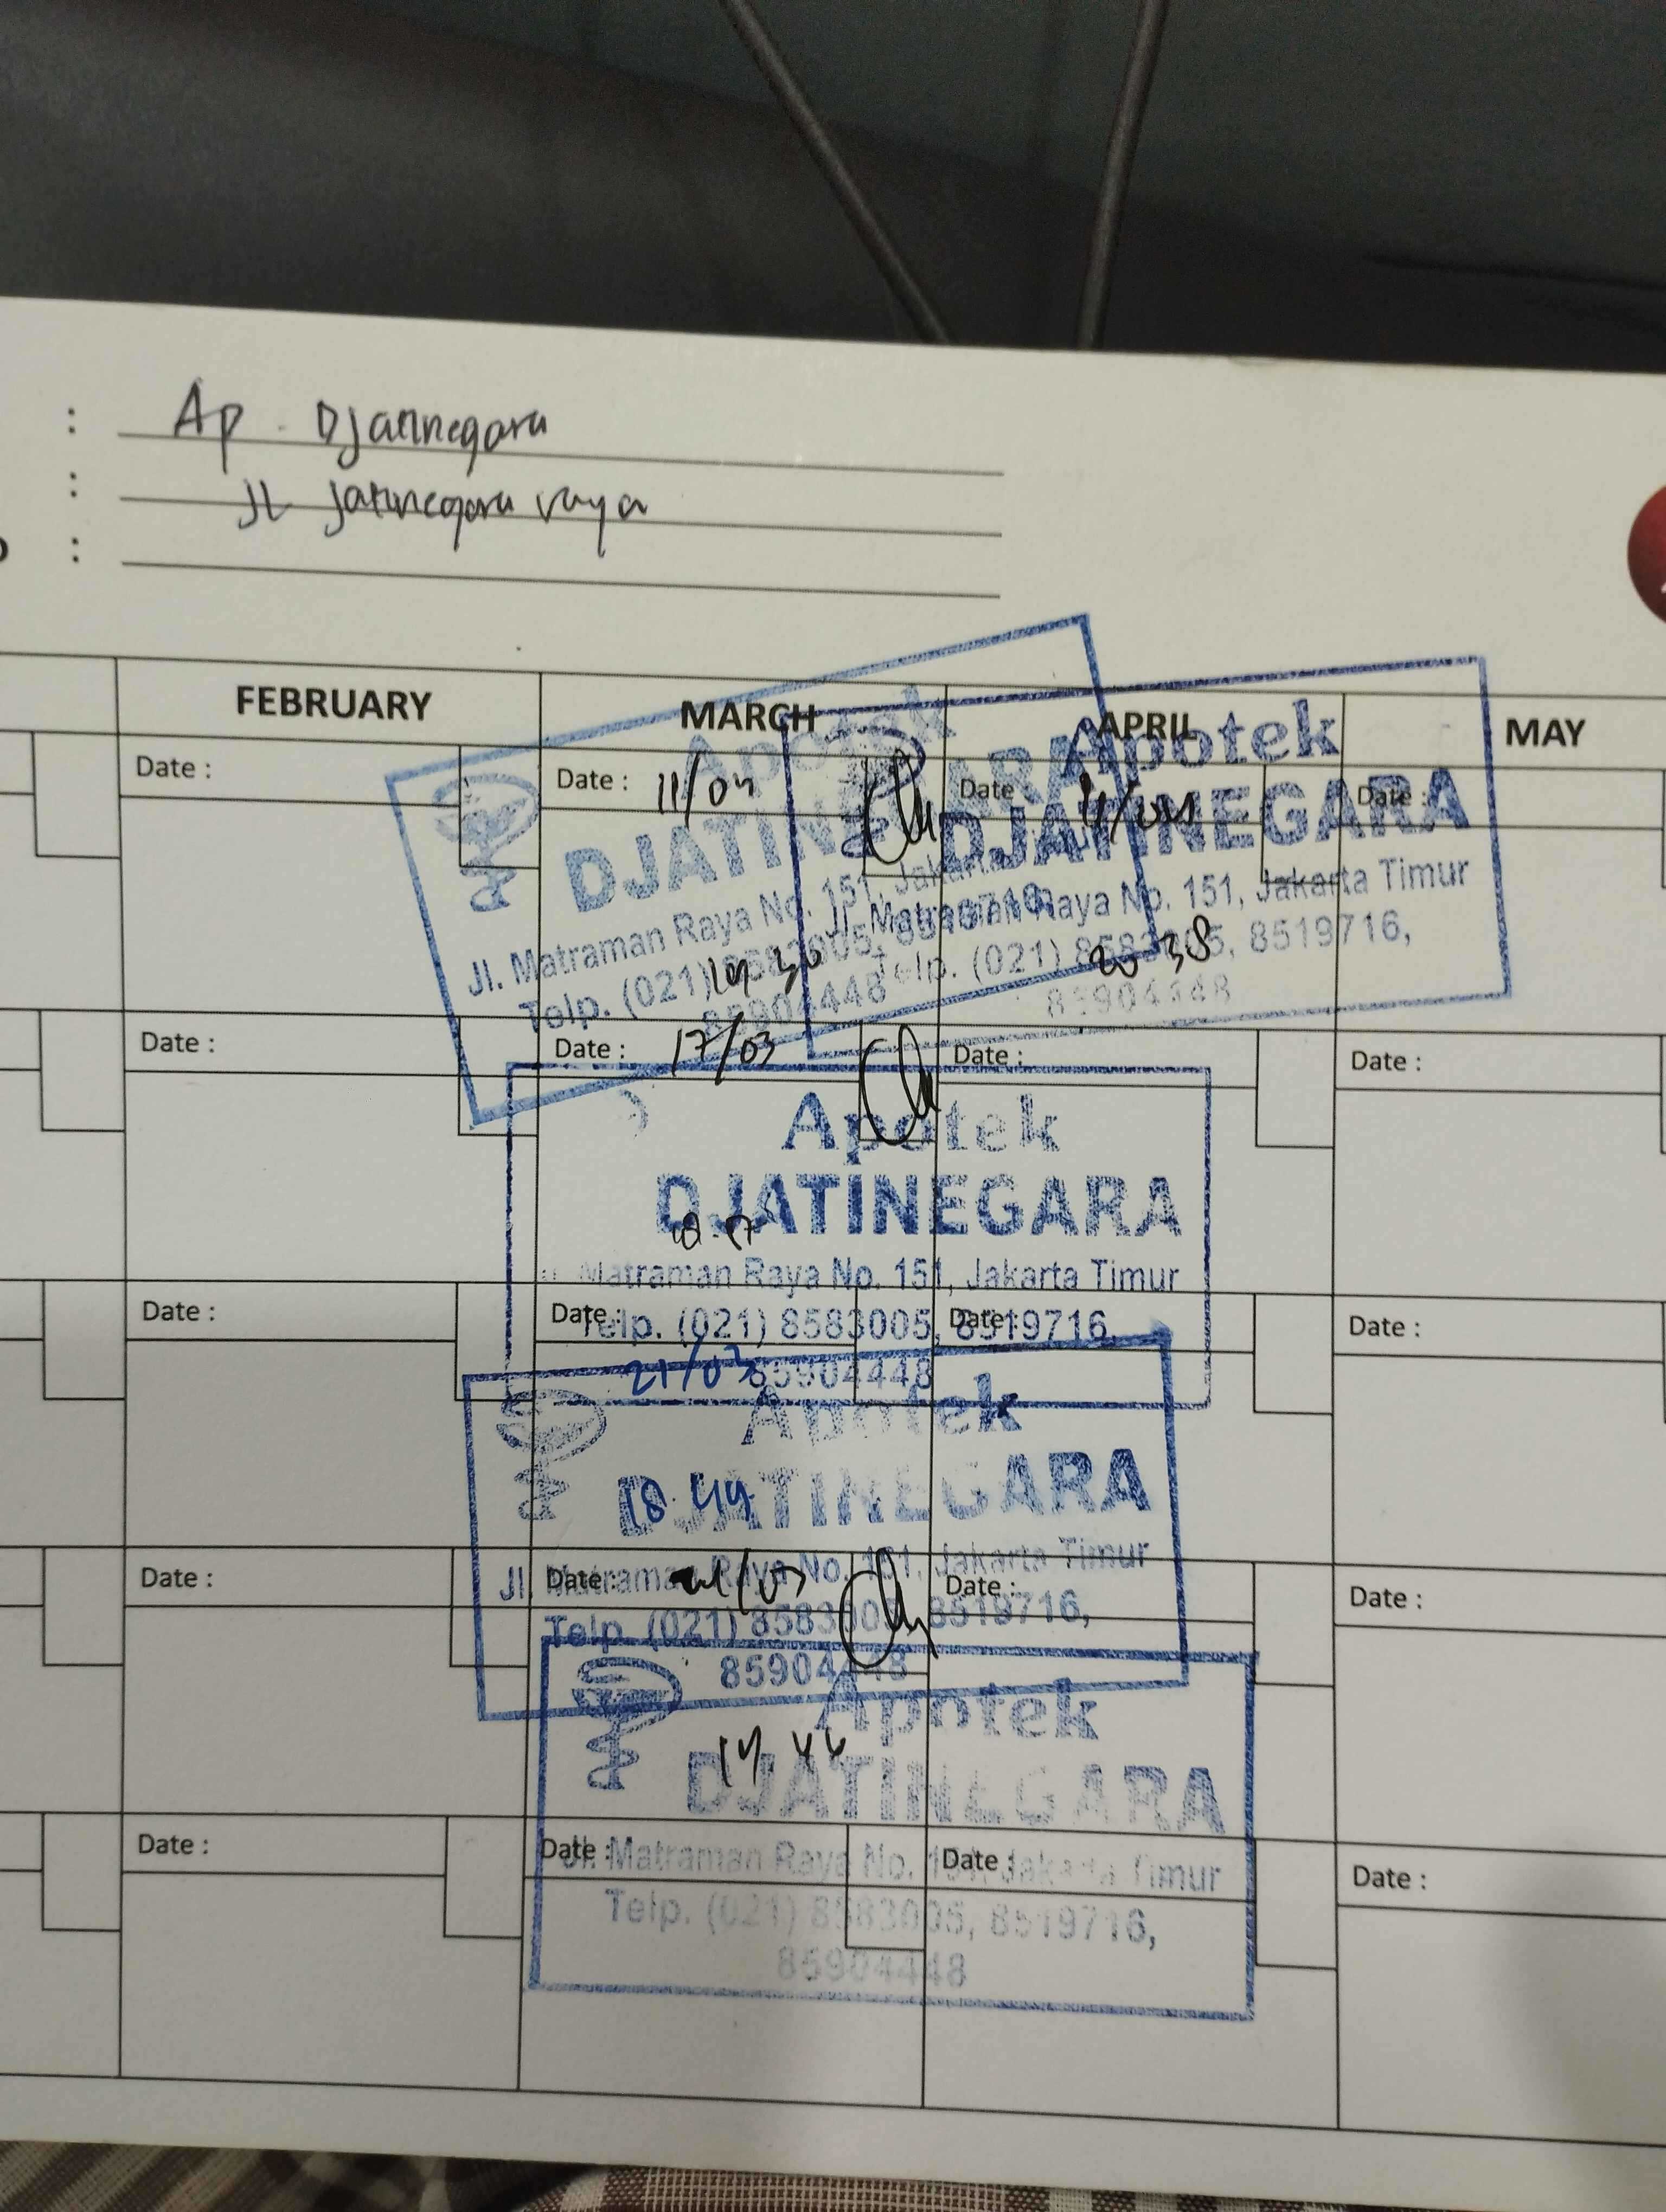 : Ap. Djatinegara
: Jl Jatinegara raya
:
FEBRUARY MARCH APRIL MAY
Date : Date : 11/03 Date Date :
Apotek
DJATINEGARA
Jl. Matraman Raya No. 151, Jakarta
Telp. (021) 8583005, 8519716,
85904448
Apotek
DJATINEGARA
Jl. Matraman Raya No. 151, Jakarta Timur
Telp. (021) 8583005, 8519716,
85904448
20 38
Date : Date : 17/03 Date : Date :
Apotek
DJATINEGARA
Matraman Raya No. 151, Jakarta Timur
Telp. (021) 8583005, 8519716,
85904448
Date : Date : Date : Date :
21/03
Apotek
DJATINEGARA
18.49
Jl. Matraman Raya No. 151, Jakarta Timur
Telp. (021) 8583005, 8519716,
85904448
Date : Date : Date : Date :
Apotek
DJATINEGARA
Jl. Matraman Raya No. 151, Jakarta Timur
Telp. (021) 8583005, 8519716,
85904448
Date : Date : Date : Date :